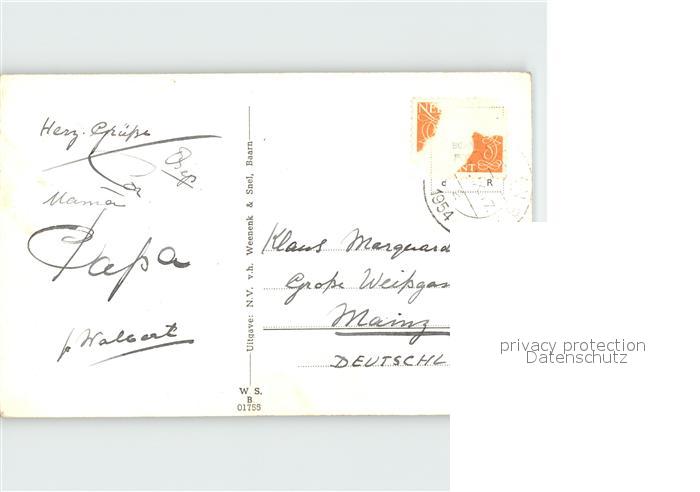 Herz. Grüße
Mama
Papa
Uitgave: N.V. v.h. Weenenk & Snel, Baarn
W. S.
B
01755
NE
NT
R
1954
Klaus Marquard
Große Weißgas
Mainz
DEUTSCHL
privacy protection
Datenschutz